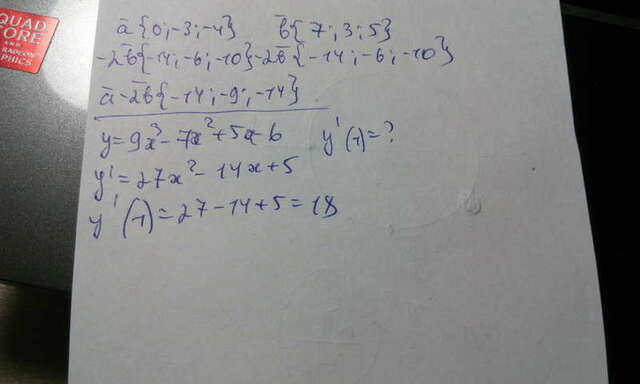 QUAD
CORE
AND RADEON
GRAPHICS
ā{0;-3;-4} b̄{7;3;5}
-2b̄{-14;-6;-10}-2b̄{-14;-6;-10}
ā-2b̄{-14;-9;-14}
y=9x³-7x²+5x-6 y'(1)=?
y'=27x²-14x+5
y'(1)=27-14+5=18